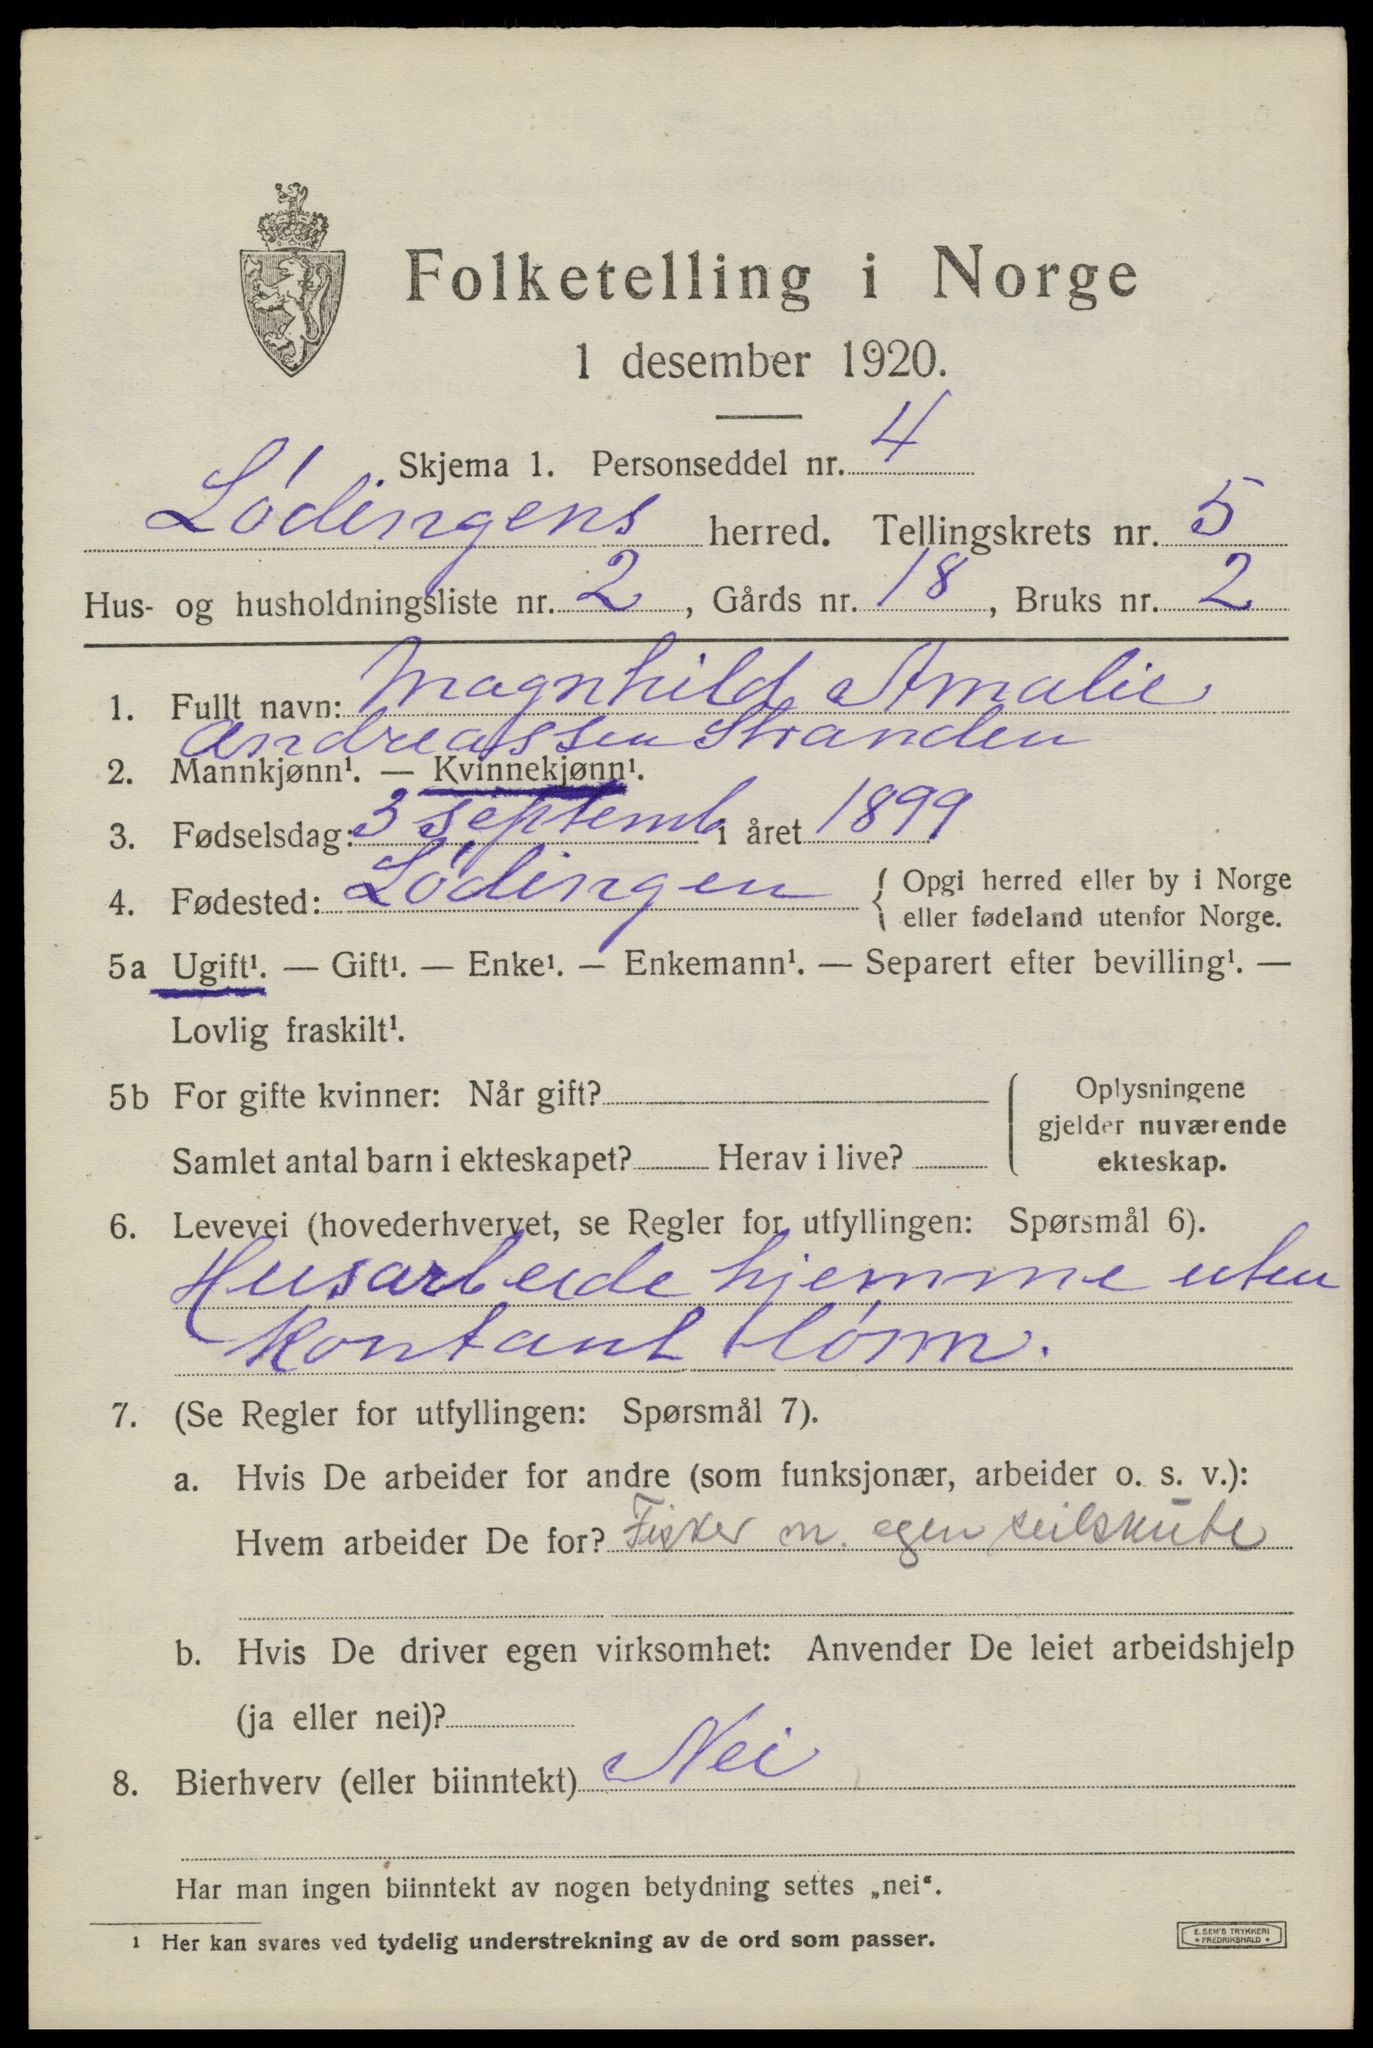 Folketelling i Norge
1 desember 1920.
Skjema 1. Personseddel nr. 4
Lødingens herred. Tellingskrets nr. 5
Hus- og husholdningsliste nr. 2, Gårds nr. 18, Bruks nr. 2
1. Fullt navn: Magnhild Amalie
Andreassen Stranden
2. Mannkjønn¹. — Kvinnekjønn¹.
3. Fødselsdag: 3 septemb i året 1899
4. Fødested: Lødingen { Opgi herred eller by i Norge
eller fødeland utenfor Norge.
5a Ugift¹. — Gift¹. — Enke¹. — Enkemann¹. — Separert efter bevilling¹. —
Lovlig fraskilt¹.
5b For gifte kvinner: Når gift?
Samlet antal barn i ekteskapet? Herav i live?
Oplysningene
gjelder nuværende
ekteskap.
6. Levevei (hovederhvervet, se Regler for utfyllingen: Spørsmål 6).
Husarbeide hjemme uten
Kontant lønn.
7. (Se Regler for utfyllingen: Spørsmål 7).
a. Hvis De arbeider for andre (som funksjonær, arbeider o. s. v.):
Hvem arbeider De for? Fisker m. egen seilskute
b. Hvis De driver egen virksomhet: Anvender De leiet arbeidshjelp
(ja eller nei)?
8. Bierhverv (eller biinntekt) Nei
Har man ingen biinntekt av nogen betydning settes „nei“.
¹ Her kan svares ved tydelig understrekning av de ord som passer.
E. SEM'S TRYKKERI
• FREDRIKSHALD •